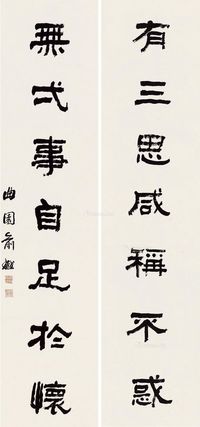 有三思咸稱不惑
無弍事自足於懷
曲園俞樾